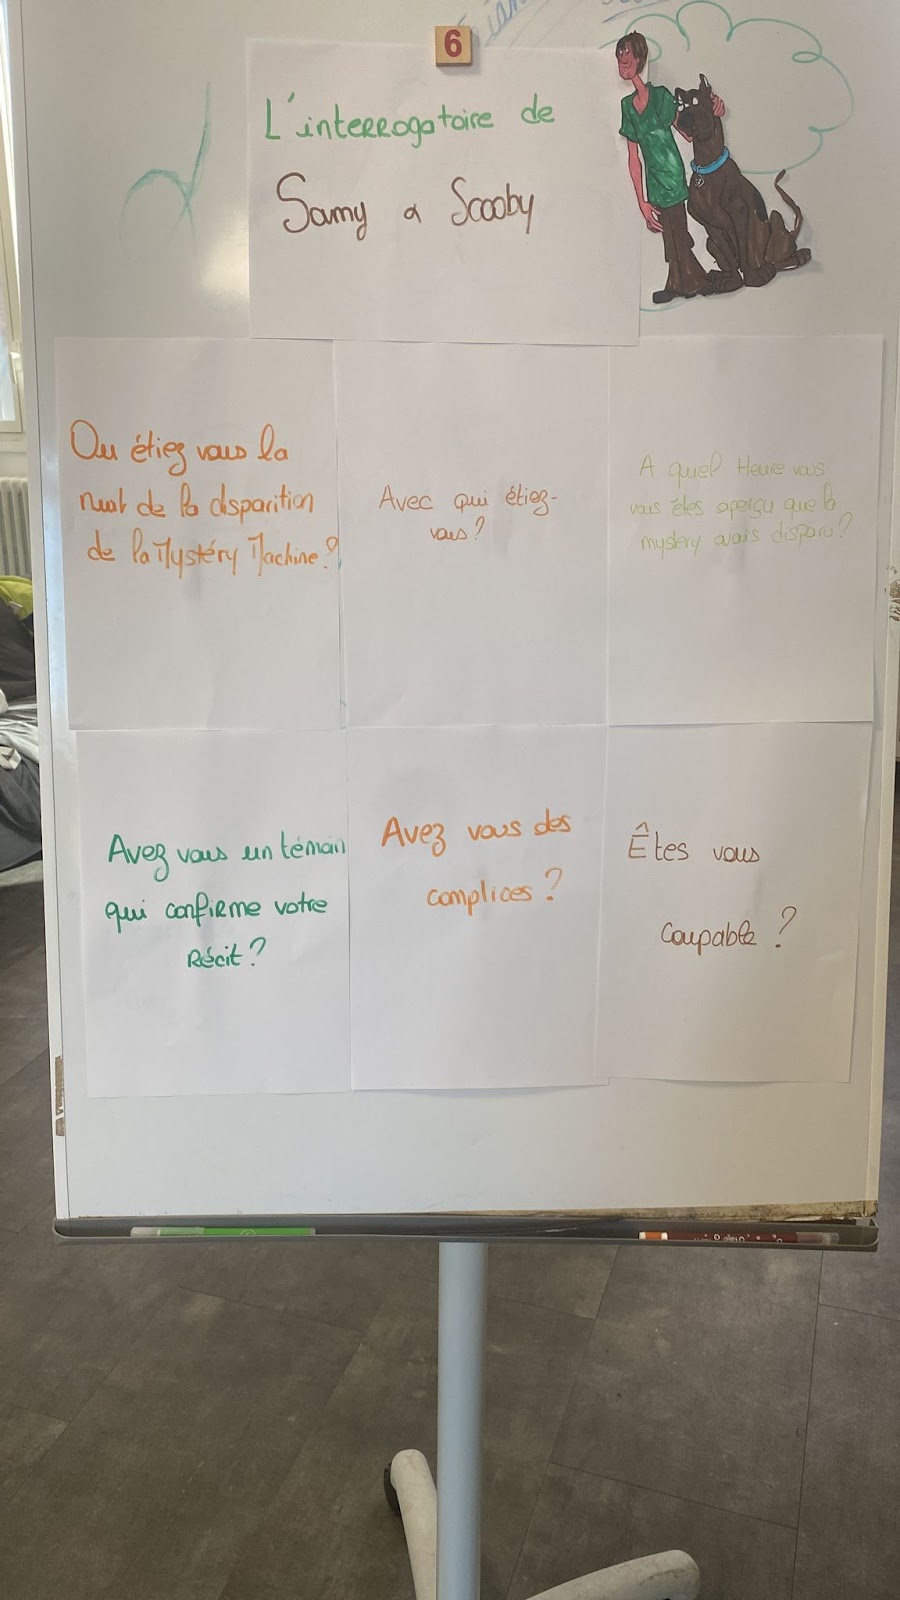 6
L'interrogatoire de
Samy & Scooby
Ou étiez vous la
nuit de la disparition
de la Mystéry Machine?
Avec qui étiez-
vous?
A quel Heure vous
vous êtes aperçu que la
mystery avais disparu?
Avez vous un témoin
qui confirme votre
Récit?
Avez vous des
complices?
Êtes vous
coupable?